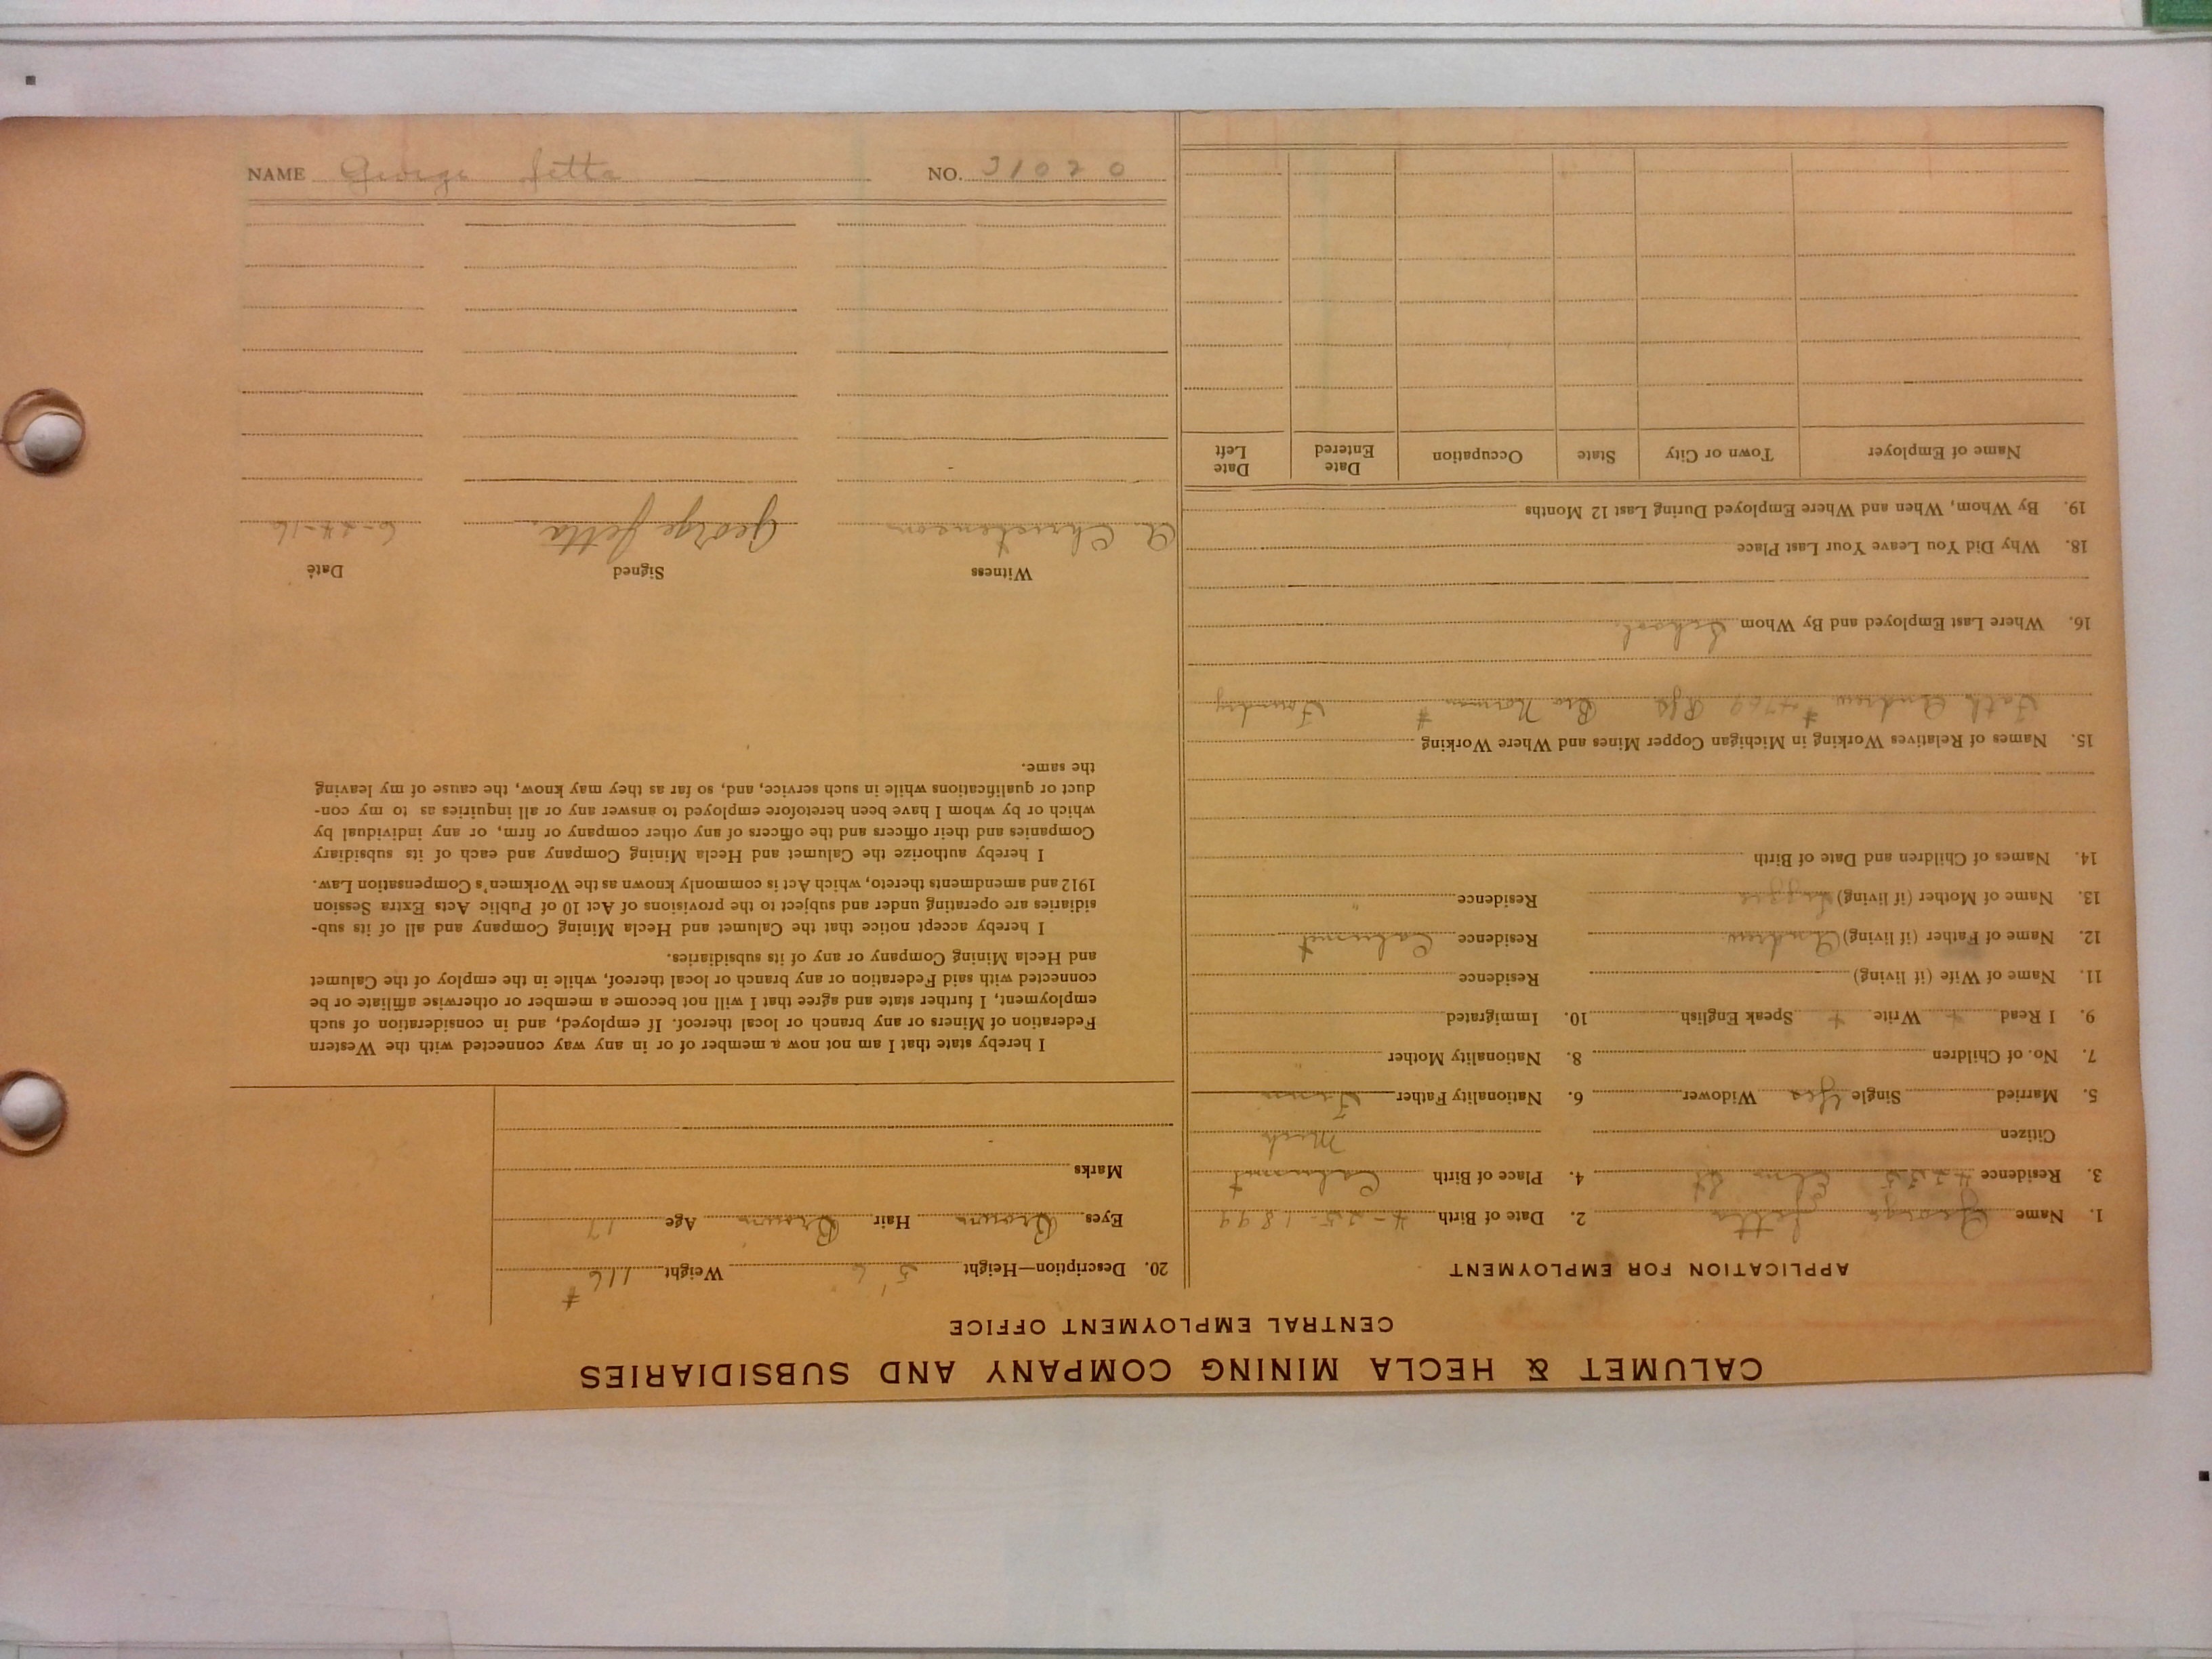 CALUMET & HECLA MINING COMPANY AND SUBSIDIARIES
CENTRAL EMPLOYMENT OFFICE
APPLICATION FOR EMPLOYMENT
1. Name George Jetta 2. Date of Birth 4-25-1899
3. Residence 4235 Elm St 4. Place of Birth Calumet
Citizen Mich
5. Married Single Yes Widower 6. Nationality Father
7. No. of Children 8. Nationality Mother
9. I Read + Write + Speak English 10. Immigrated
11. Name of Wife (if living) Residence
12. Name of Father (if living) Andrew Residence Calumet
13. Name of Mother (if living) Residence "
14. Names of Children and Date of Birth
15. Names of Relatives Working in Michigan Copper Mines and Where Working
Fath Andrew # 4769 Bro Norman # Foundry
16. Where Last Employed and By Whom School.
18. Why Did You Leave Your Last Place
19. By Whom, When and Where Employed During Last 12 Months
Name of Employer Town or City State Occupation Date Entered Date Left
20. Description—Height 5' 6 Weight 116 #
Eyes Brown Hair Brown Age 17
Marks
I hereby state that I am not now a member of or in any way connected with the Western
Federation of Miners or any branch or local thereof. If employed, and in consideration of such
employment, I further state and agree that I will not become a member or otherwise affiliate or be
connected with said Federation or any branch or local thereof, while in the employ of the Calumet
and Hecla Mining Company or any of its subsidiaries.
I hereby accept notice that the Calumet and Hecla Mining Company and all of its sub-
sidiaries are operating under and subject to the provisions of Act 10 of Public Acts Extra Session
1912 and amendments thereto, which Act is commonly known as the Workmen's Compensation Law.
I hereby authorize the Calumet and Hecla Mining Company and each of its subsidiary
Companies and their officers and the officers of any other company or firm, or any individual by
which or by whom I have been heretofore employed to answer any or all inquiries as to my con-
duct or qualifications while in such service, and, so far as they may know, the cause of my leaving
the same.
Witness Signed Date
A. Christenson George Jetta. 6-24-16
NAME George Jetta NO. 31020